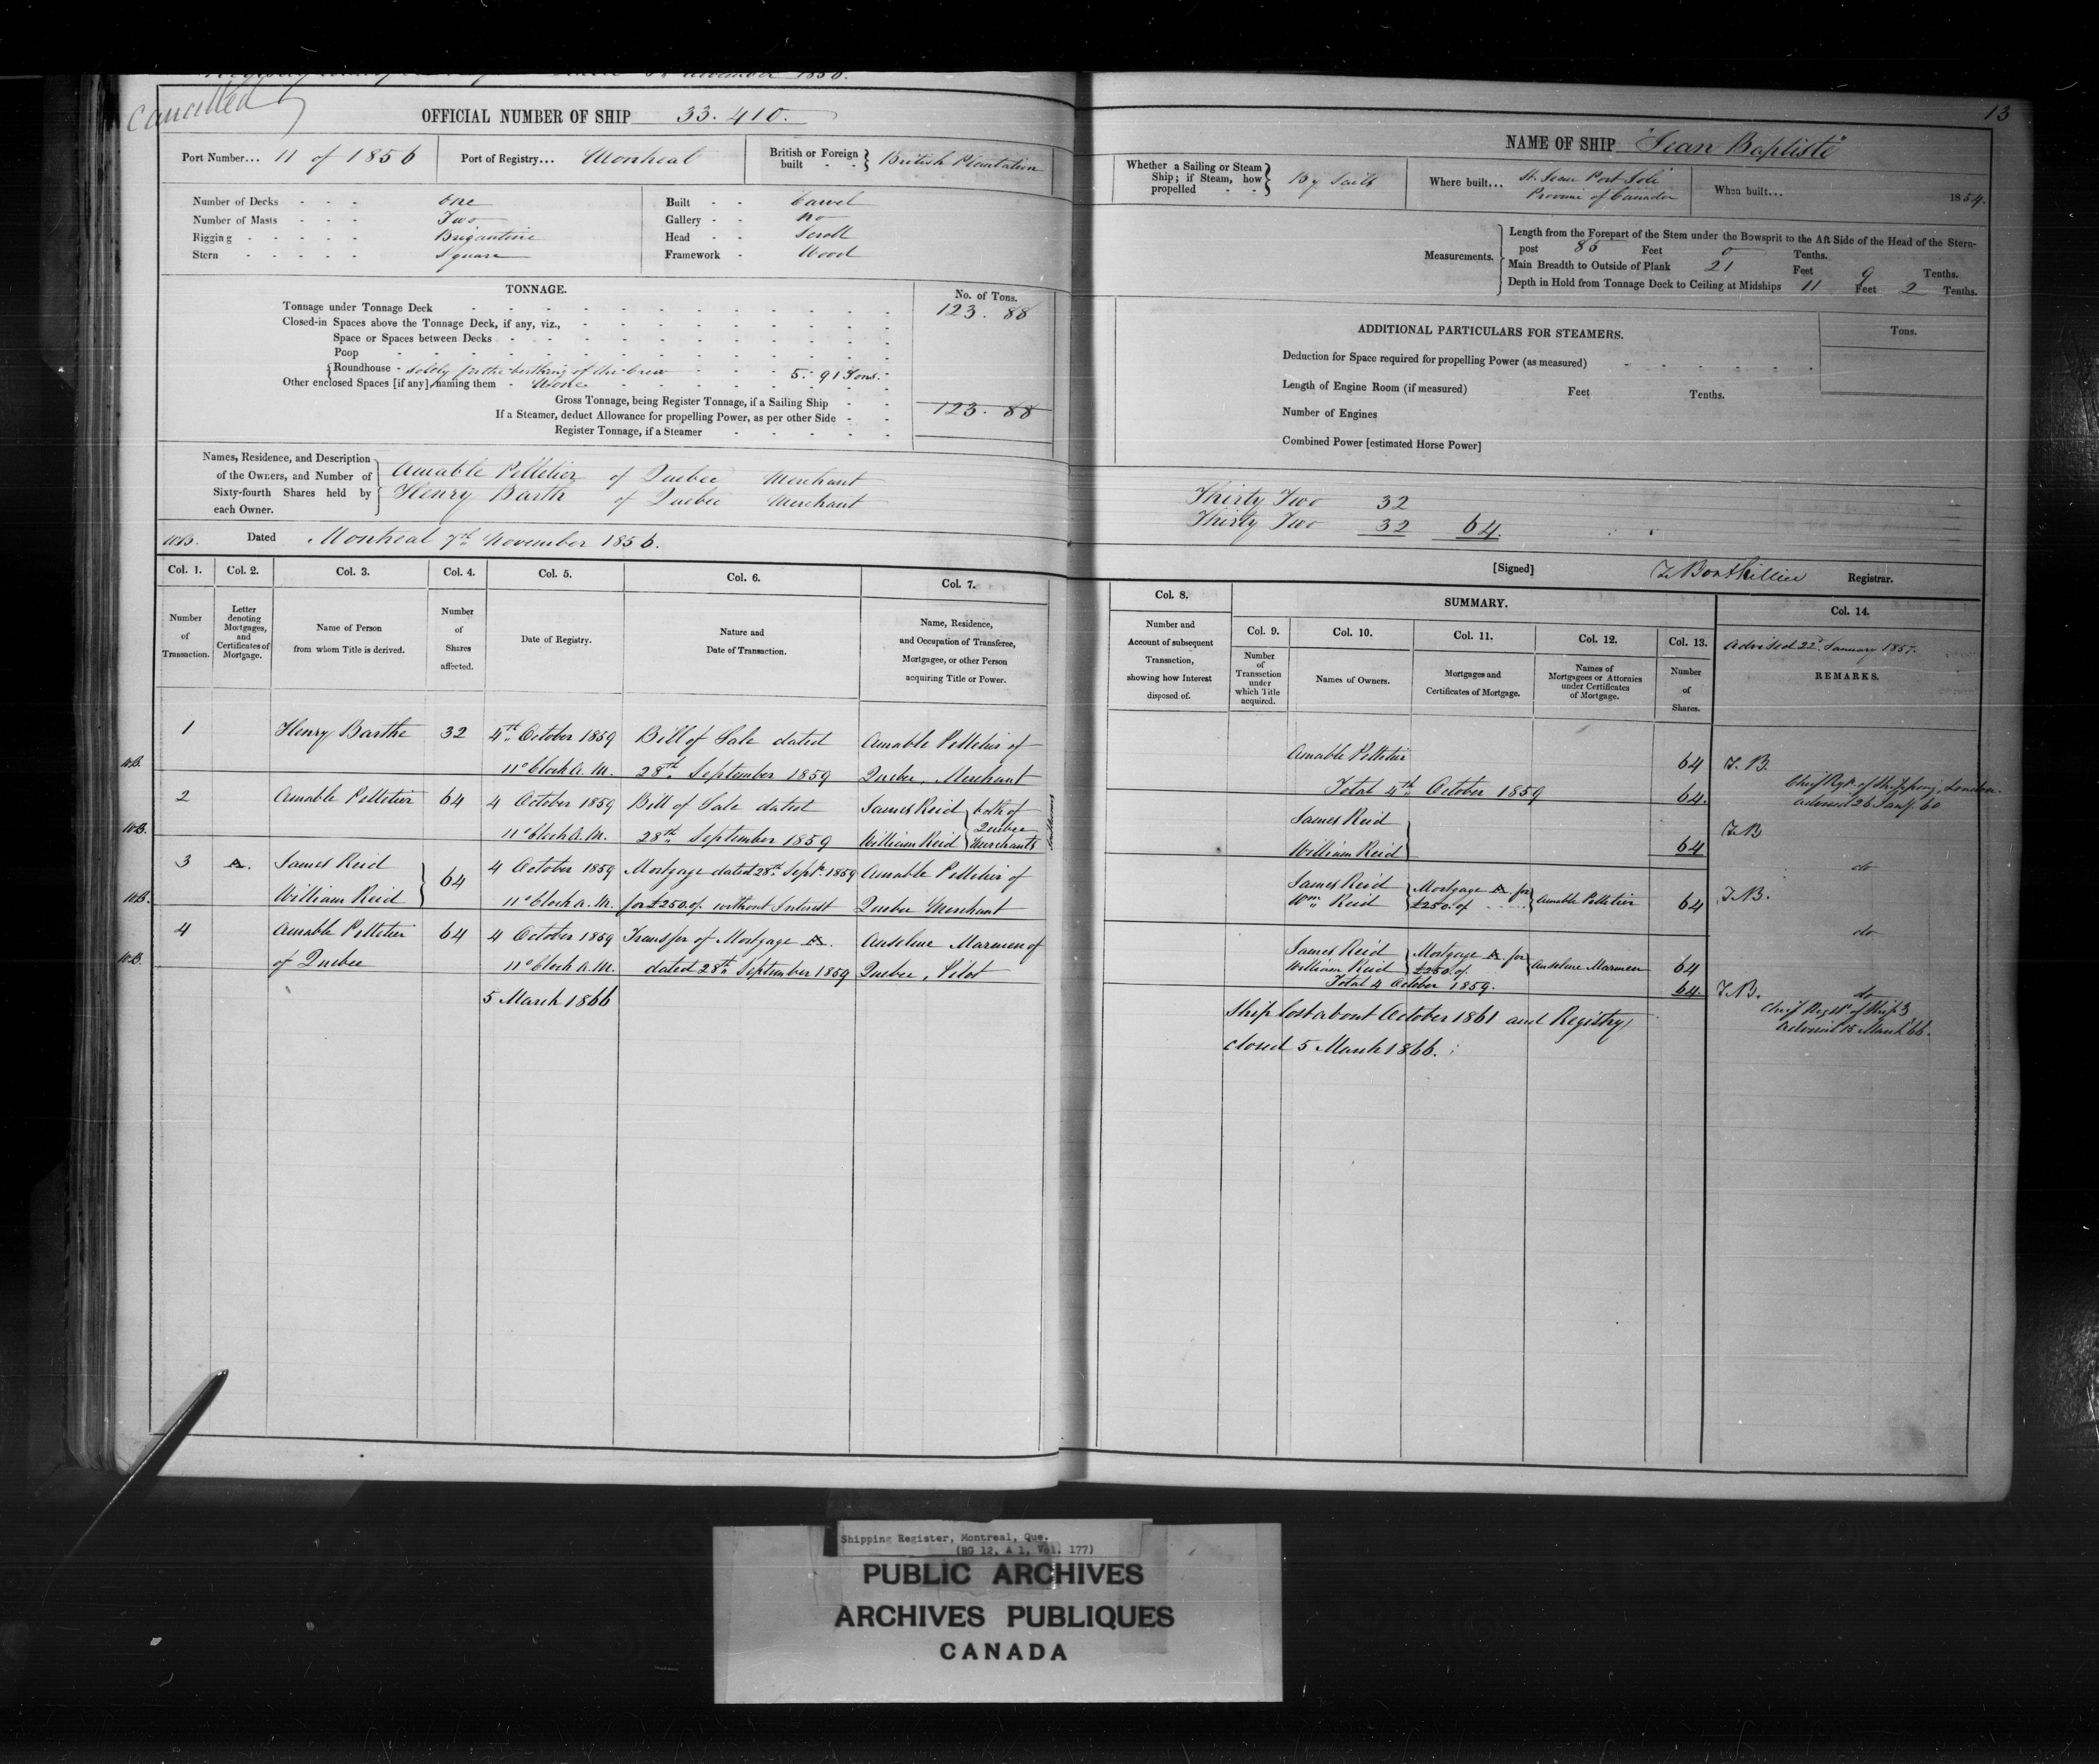 November 1856.
Cancelled
OFFICIAL NUMBER OF SHIP 33.410.
Port Number... 11 of 1856 Port of Registry... Montreal British or Foreign built - - } British Plantation
Number of Decks - - - One Built - - Carvel
Number of Masts - - - Two Gallery - - No
Rigging - - - - Brigantine Head - - Scroll
Stern - - - - Square Framework - Wood
TONNAGE. No. of Tons.
Tonnage under Tonnage Deck 123.88
Closed-in Spaces above the Tonnage Deck, if any, viz.,
Space or Spaces between Decks
Poop
Roundhouse - solely for the berthing of the Crew 5.91 Tons.
Other enclosed Spaces [if any] naming them - None
Gross Tonnage, being Register Tonnage, if a Sailing Ship 123.88
If a Steamer, deduct Allowance for propelling Power, as per other Side
Register Tonnage, if a Steamer
Names, Residence, and Description
of the Owners, and Number of
Sixty-fourth Shares held by
each Owner.
Amable Pelletier of Quebec Merchant
Henry Barth of Quebec Merchant
Dated Montreal 7th November 1856.
Col. 1. Col. 2. Col. 3. Col. 4. Col. 5. Col. 6. Col. 7.
Number of Transaction.
Letter denoting Mortgages, and Certificates of Mortgage.
Name of Person from whom Title is derived.
Number of Shares affected.
Date of Registry.
Nature and Date of Transaction.
Name, Residence, and Occupation of Transferee, Mortgagee, or other Person acquiring Title or Power.
1 Henry Barthe 32 4th October 1859 Bill of Sale dated Amable Pelletier of
11 o'Clock A.M. 28th September 1859 Quebec, Merchant
2 Amable Pelletier 64 4 October 1859 Bill of Sale dated James Reid } both of
Quebec
11 o'Clock A.M. 28th September 1859 William Reid } Merchants
3 A. James Reid } 64 4 October 1859 Mortgage dated 28th Sept. 1859 Amable Pelletier of
William Reid 11 o'Clock A.M. for £250.of. without Interest Quebec Merchant
4 Amable Pelletier 64 4 October 1859 Transfer of Mortgage A. Anselme Marmen of
of Quebec 11 o'Clock A.M. dated 28th September 1859 Quebec, Pilot
5 March 1866
13
NAME OF SHIP "Jean Baptiste"
Whether a Sailing or Steam Ship; if Steam, how propelled - - } By Sails
Where built... St. Jean Port Joli
Province of Canada
When built... 1854.
Measurements.
Length from the Forepart of the Stem under the Bowsprit to the Aft Side of the Head of the Stern-
post 85 Feet 0 Tenths.
Main Breadth to Outside of Plank 21 Feet 9 Tenths.
Depth in Hold from Tonnage Deck to Ceiling at Midships 11 Feet 2 Tenths.
ADDITIONAL PARTICULARS FOR STEAMERS. Tons.
Deduction for Space required for propelling Power (as measured)
Length of Engine Room (if measured) Feet Tenths.
Number of Engines
Combined Power [estimated Horse Power]
Thirty Two 32
Thirty Two 32 64.
[Signed] Registrar.
Col. 8. SUMMARY. Col. 14.
Col. 9. Col. 10. Col. 11. Col. 12. Col. 13.
Number and Account of subsequent Transaction, showing how Interest disposed of.
Number of Transaction under which Title acquired.
Names of Owners.
Mortgages and Certificates of Mortgage.
Names of Mortgagees or Attornies under Certificates of Mortgage.
Number of Shares.
Advised 22d January 1857.
REMARKS.
Amable Pelletier 64 T.B.
Total 4th October 1859 64. Chief Regr. of Shipping, London.
Advised 26 Jany. 60
James Reid } T.B.
William Reid } 64 do
James Reid } Mortgage A. for } Amable Pelletier 64 T.B.
Wm. Reid } £250.of. do
James Reid } Mortgage A. for } Anselme Marmen 64
William Reid } £250.of.
Total 4 October 1859. 64. T.B. do
Ship lost about October 1861 and Registry
closed 5 March 1866.
Chief Regr. of Ship.g
Advised 15 March 66.
Shipping Register, Montreal, Que.
(RG 12, A 1, Vol. 177)
PUBLIC ARCHIVES
ARCHIVES PUBLIQUES
CANADA